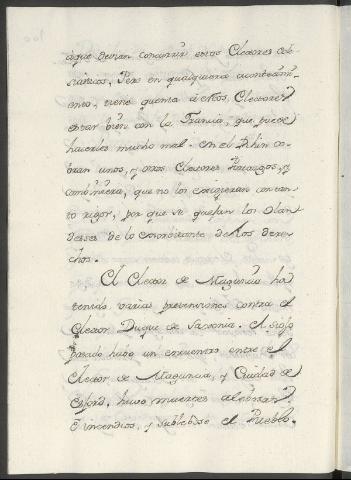 àque devian concurrir estos Electores ecle-
siasticos, Pero en qualquiera acontezim-
ento, tiene quenta à èstos, Electores
estar bièn con la Francia, que puede
hacerles mucho mal. En el Rhin co-
bran unos, y otros Electores Peaxgos, y
combiniera, que no los cogieran con tan-
to rigor, por que se quejan los olan
desses de lo exorbitante de èstos dere-
chos.
El Elector de Maguncia ha
tenido varias prevenciones contra el
Elector Duque de Saxonia. El siglo
pasado hubo un encuentro entre el
Elector de Maguncia, y Ciudad de
Erford, huvo muertes alboran
è incendios, y sublebòse el Pueblo.